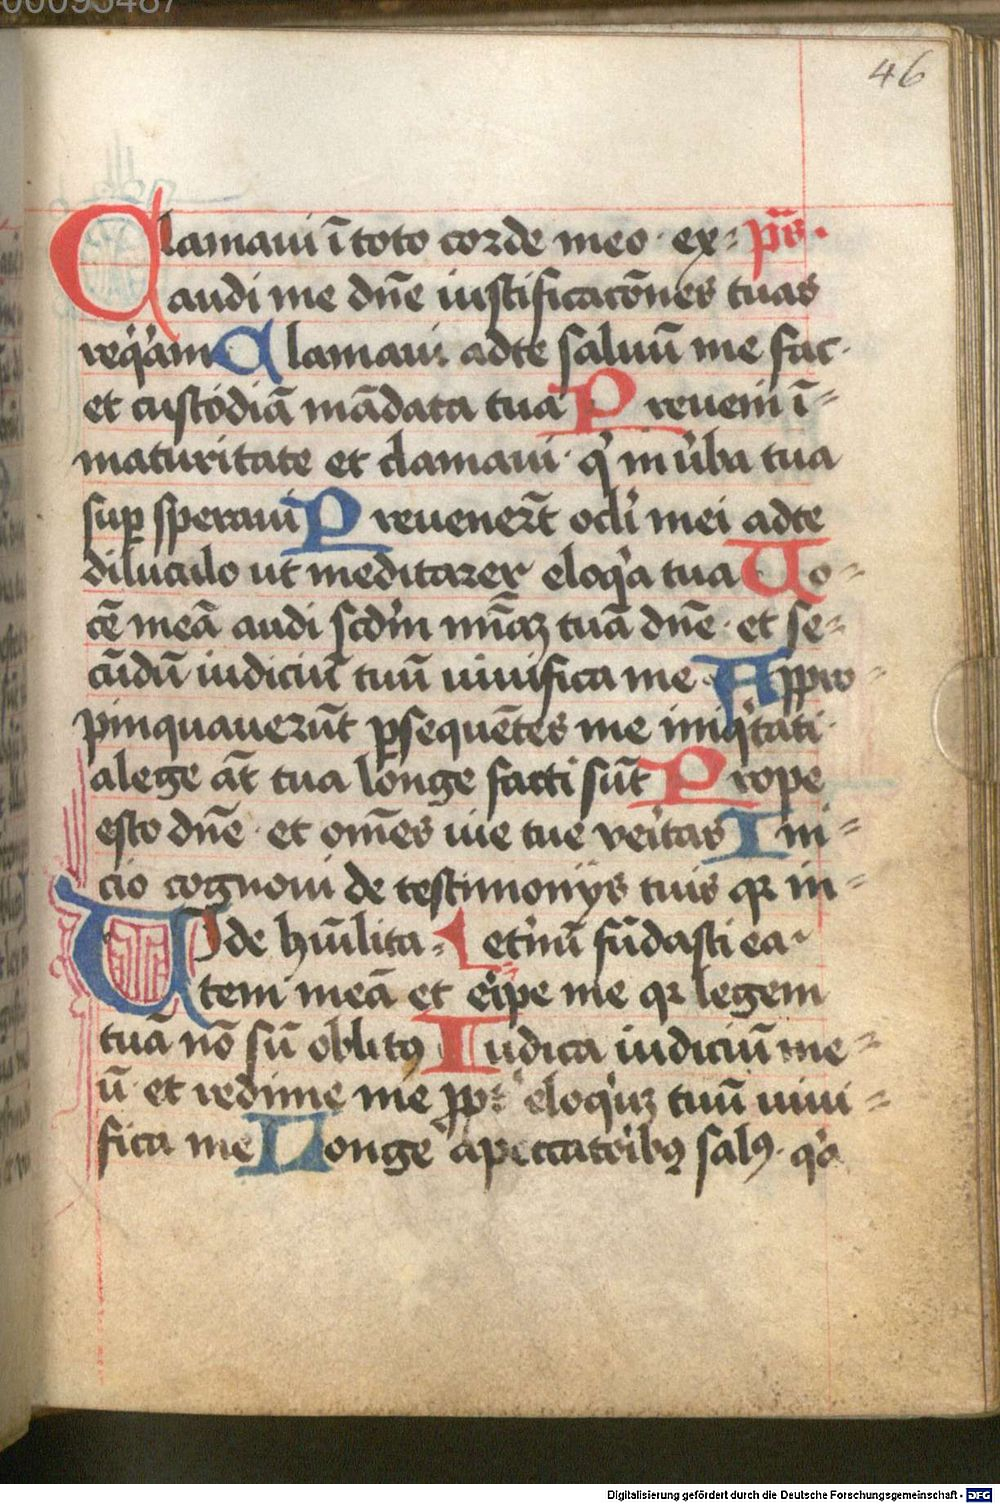 00095487
46
Clamaui ī toto corde meo · ex= ps̄ ·
audi me dn̄e iustificacōnes tuas
req̇ram Clamaui adte saluū me fac ·
et custodiā mādata tua Preueni ī=
maturitate et clamaui · q̇ in u̇ba tua
sup̱ speraui Preuener̄t ocl̇i mei adte
diluculo ut meditarer eloq̇a tua Uo=
cē meā audi scd̄m mīaꝫ tuā dn̄e · et se=
cūdū iudiciū tuū uiuifica me · Appro=
pinquauerūt ꝑsequētes me iniq̇tati ·
alege āt tua longe facti sūt Prope
esto dn̄e · et om̄es uie tue ueritas Ini=
cio cognoui de testimonijs tuis qꝛ in=
Uide hūilita= eternū fūdasti ea ·
tem meā et eripe me qꝛ legem
tuā nō sū oblitꝯ Iudica iudiciū me=
ū · et redime me ꝓpt̄ eloq̇uꝫ tuū uiui=
fica me Longe apeccatoribꝯ salꝯ · q̇a
Digitalisierung gefördert durch die Deutsche Forschungsgemeinschaft - DFG